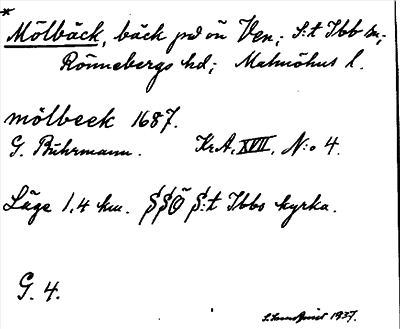 *
Mölbäck, bäck på ön Ven; S:t Ibb sn;
Rönnebergs hd; Malmöhus l.
mölbeck 1687.
G. Buhrmann. Kr.A. XVII, N:o 4.
Läge 1,4 km. SSÖ S:t Ibbs kyrka.
G. 4.
1937.